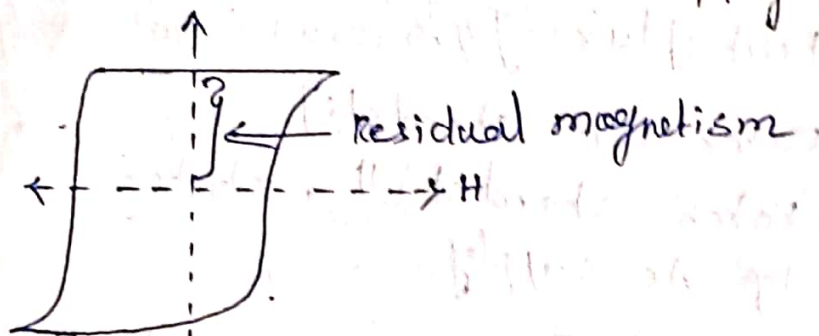 Residual magnetism
H